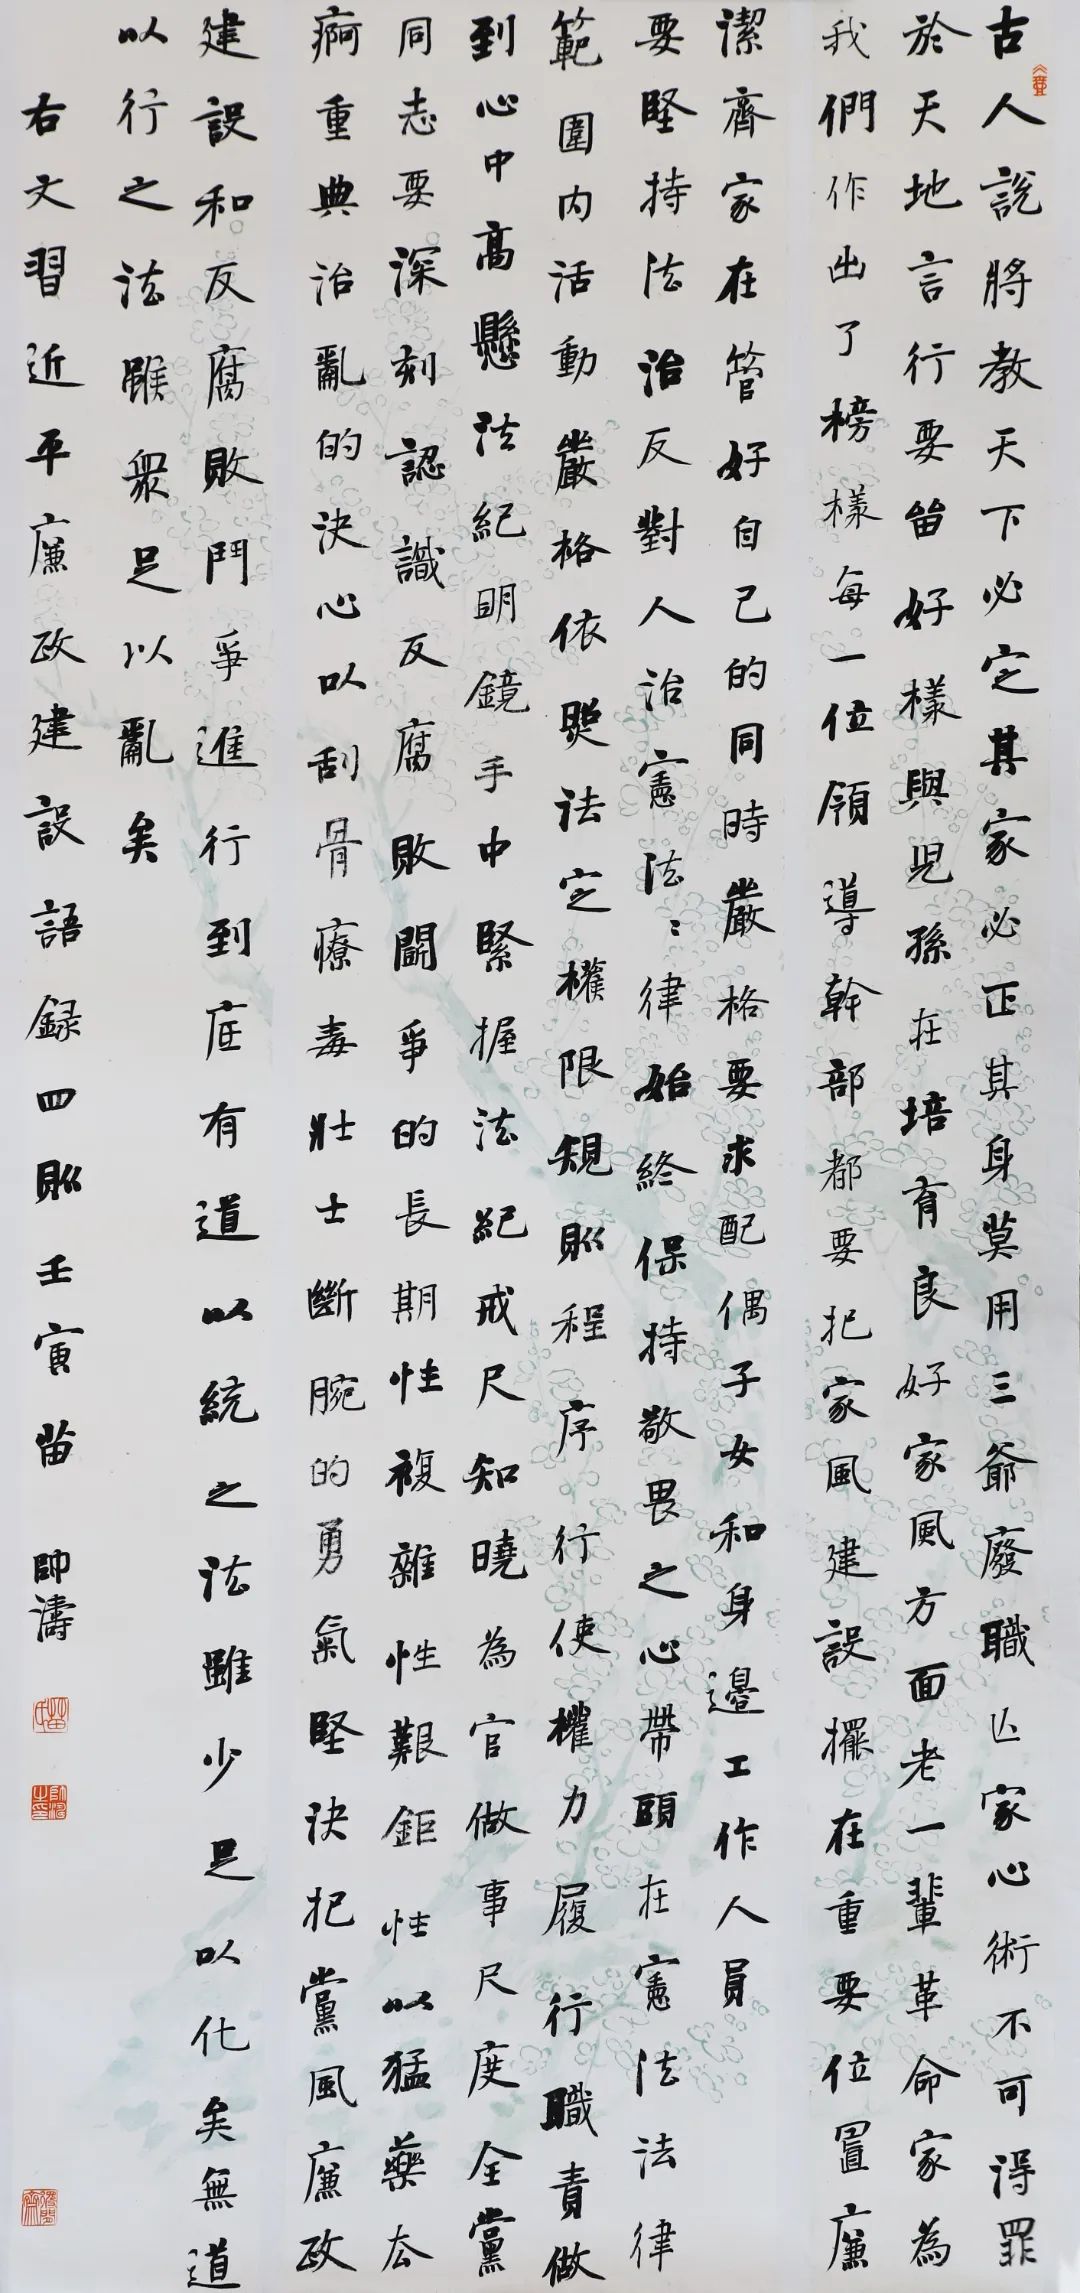 古人說將教天下必定其家必正其身莫用三爺廢職亡家心術不可得罪
於天地言行要留好樣與兒孫在培育良好家風方面老一輩革命家為
我們作出了榜樣每一位領導幹部都要把家風建設擺在重要位置廉
潔齊家在管好自己的同時嚴格要求配偶子女和身邊工作人員
要堅持法治反對人治憲法法律始終保持敬畏之心帶頭在憲法法律
範圍内活動嚴格依照法定權限規則程序行使權力履行職責做
到心中高懸法紀明鏡手中緊握法紀戒尺知曉為官做事尺度全黨
同志要深刻認識反腐敗鬬爭的長期性複雜性艱鉅性以猛藥去
痾重典治亂的決心以刮骨療毒壯士斷腕的勇氣堅決把黨風廉政
建設和反腐敗鬥爭進行到底有道以統之法雖少足以化矣無道
以行之法雖衆足以亂矣
右文習近平廉政建設語録四則壬寅苗帥濤